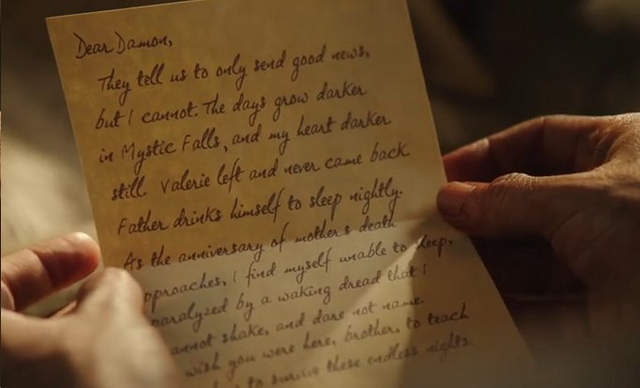 Dear Damon,
They tell us to only send good news,
but I cannot. The days grow darker
in Mystic Falls, and my heart darker
still. Valerie left and never came back
Father drinks himself to sleep nightly.
As the anniversary of mothers death
pproaches, I find myself unable to sleep,
paralyzed by a waking dread that I
annot shake, and dare not name
wish you were here, brother, to teach
to survive these endless nights